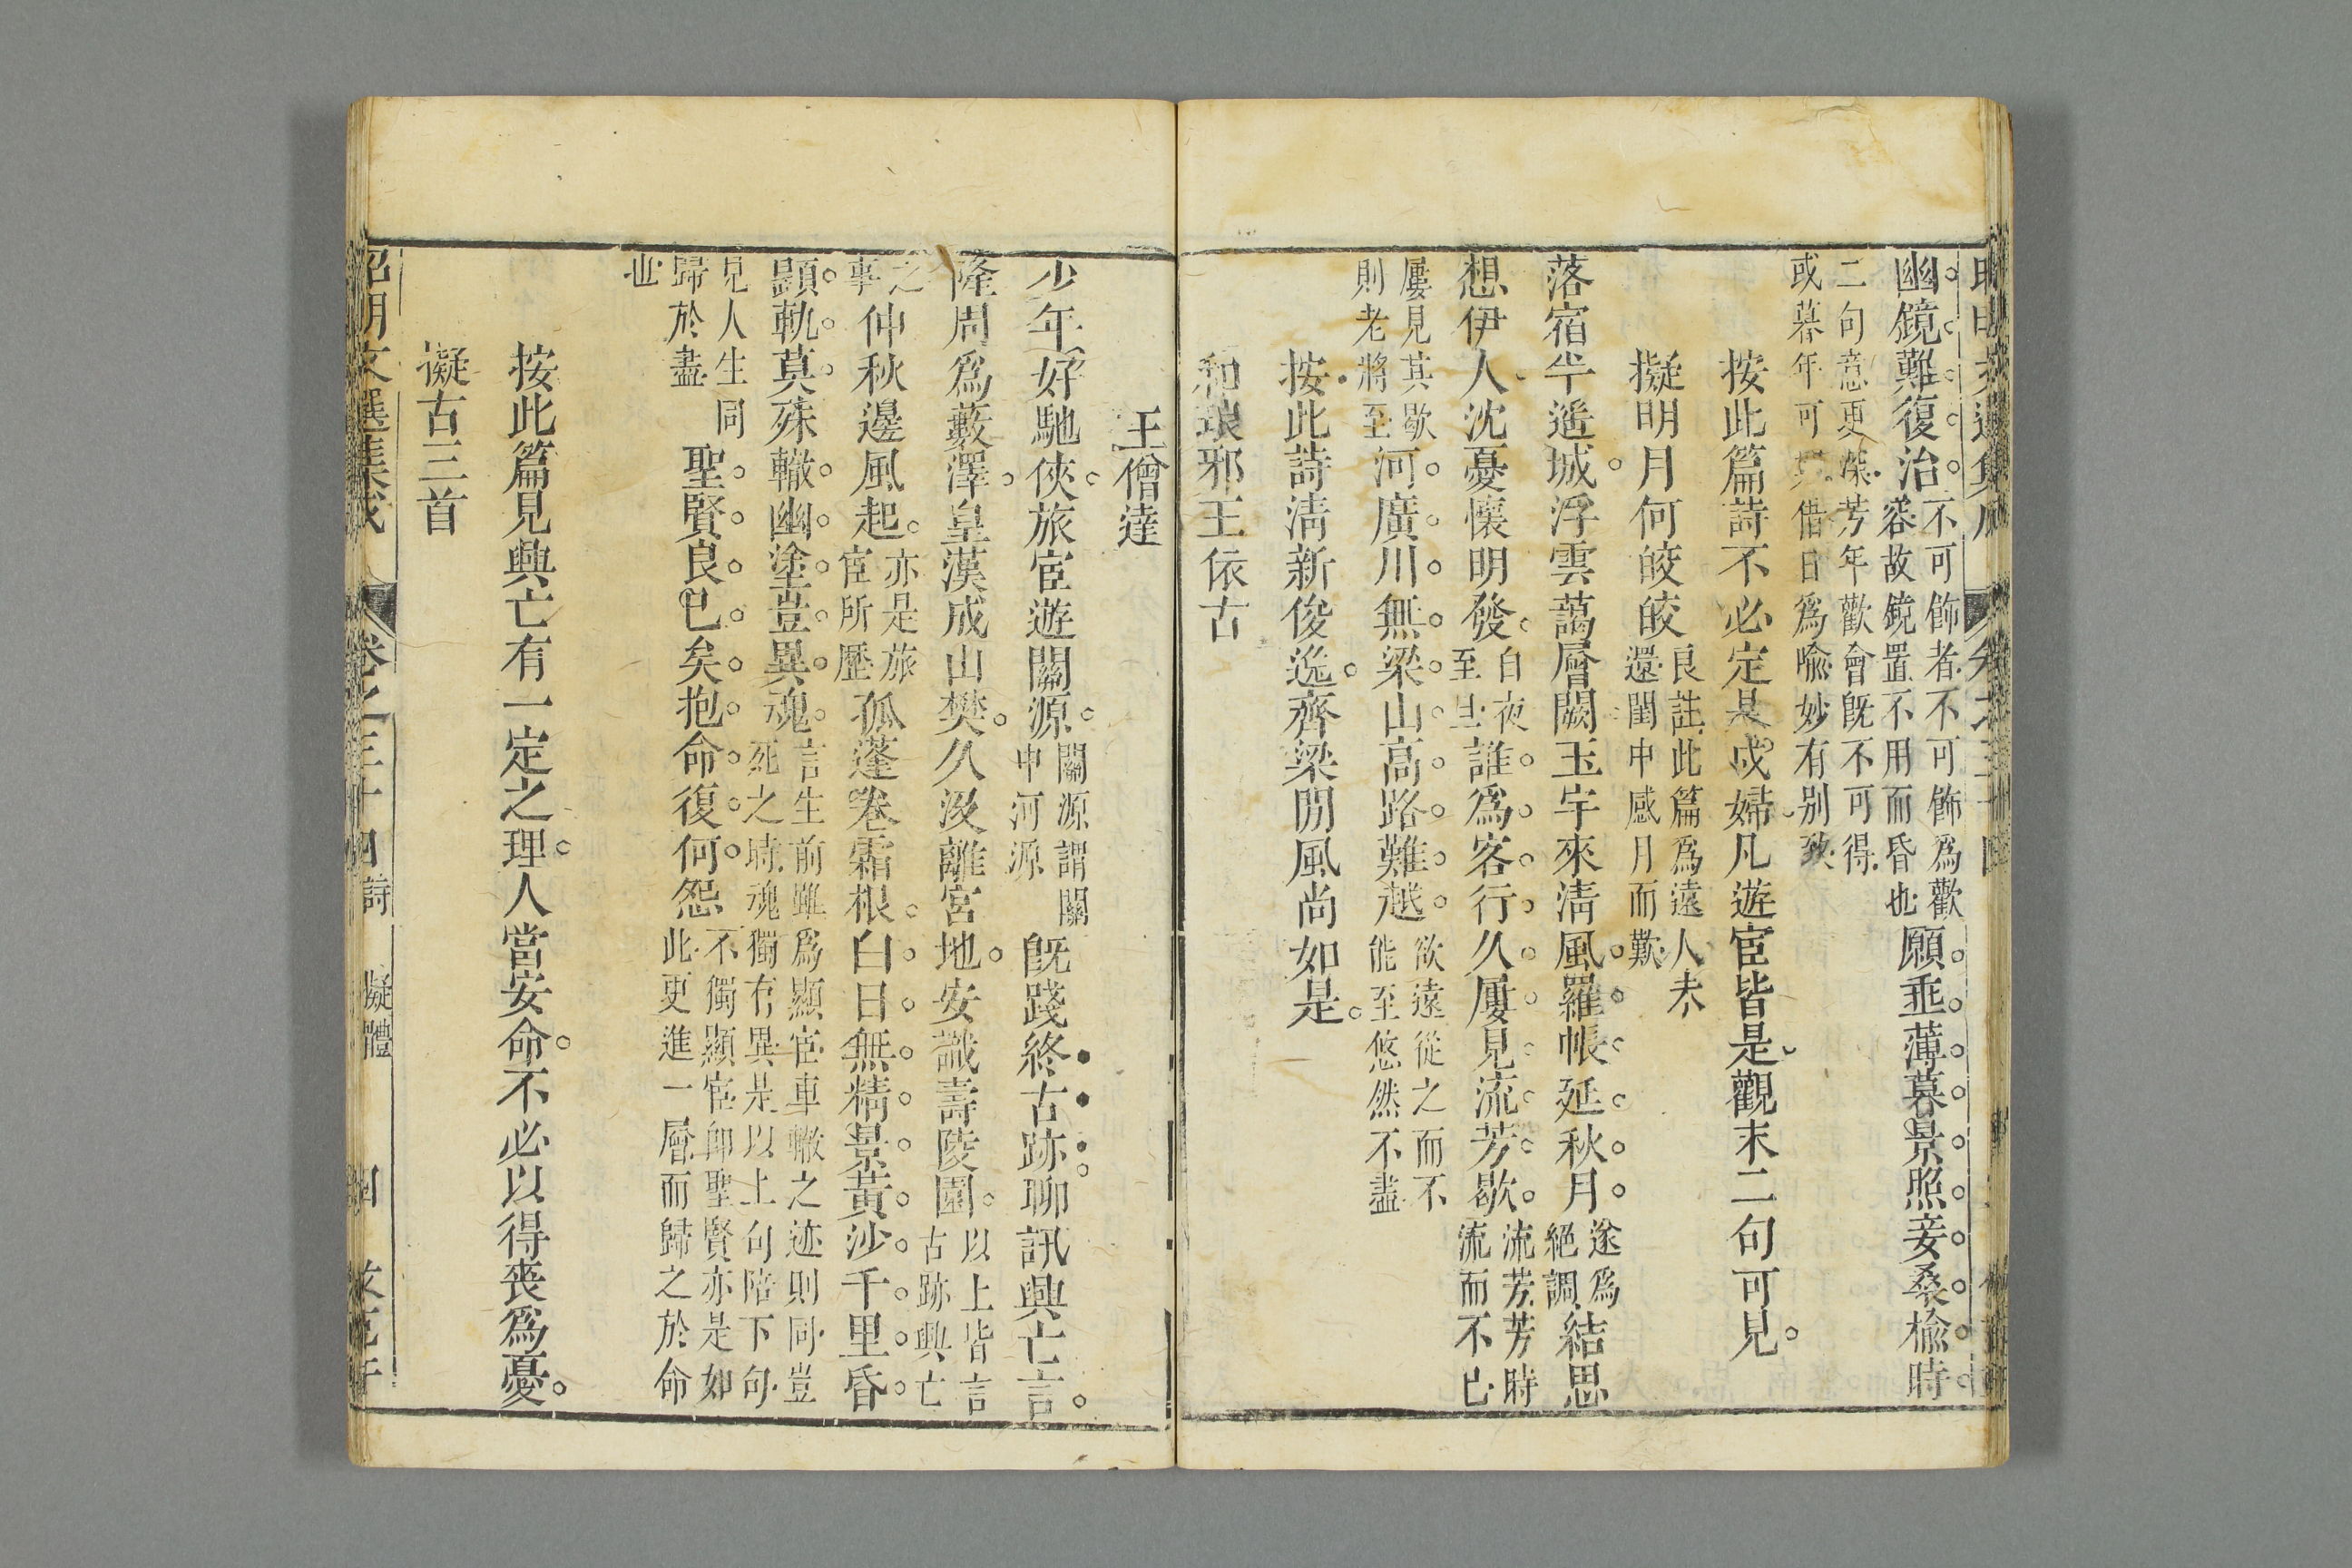 幽鏡難復治不可飾者不可飾爲歡容故鏡置不用而昏也願垂薄暮景照妾桑榆時
二句意更深芳年歡會既不可得或暮年可借日爲喻妙有別致
按此篇詩不必定是戍婦凡遊宦皆是觀末二句可見
擬明月何皎皎良註此篇爲遠人未還閨中感月而歎
落宿半遥城浮雲藹層闕玉宇來清風羅帳延秋月遂爲絕調結思
想伊人沈憂懷明發自夜至旦誰爲客行久屢見流芳歇流芳芳時流而不已
屢見其歇則老將至河廣川無梁山高路難越欲遠從之而不能至悠然不盡
按此詩清新俊逸齊梁間風尚如是
和琅邪王依古
王僧達
少年好馳俠旅宦遊關源關源謂關中河源既踐終古跡聊訊興亡言
隆周爲藪澤皇漢成山樊久沒離宮地安識壽陵園以上皆言古跡興亡
之事仲秋邊風起亦是旅宦所歷孤蓬卷霜根白日無精景黃沙千里昏
顯軌莫殊轍幽塗豈異魂言生前雖爲顯宦車轍之迹則同豈死之時魂獨有異是以上句陪下句
見人生同歸於盡也聖賢良已矣抱命復何怨不獨顯宦卽聖賢亦是如此更進一層而歸之於命
按此篇見興亡有一定之理人當安命不必以得喪爲憂
擬古三首
昭明文選集成 卷之三十四 詩 擬體 四